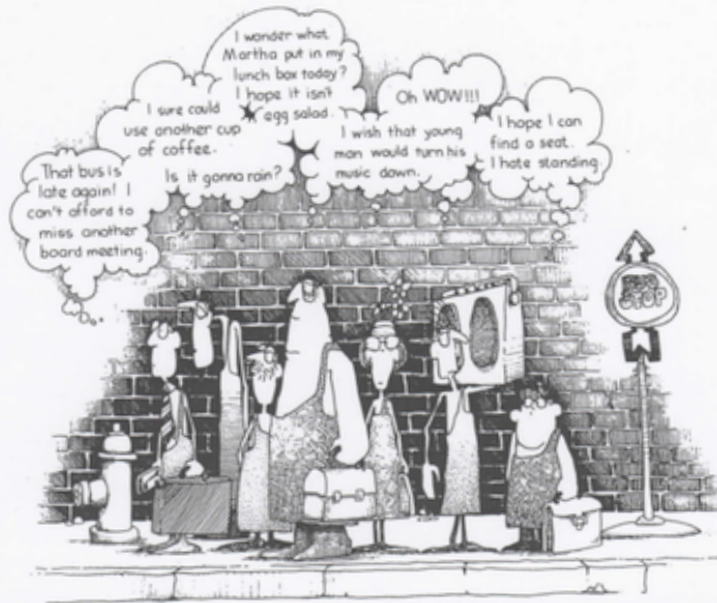 That bus is
late again! I
can't afford to
miss another
board meeting.
I sure could
use another cup
of coffee.
Is it gonna rain?
I wonder what
Martha put in my
lunch box today?
I hope it isn't
egg salad.
I wish that young
man would turn his
music down.
Oh WOW!!!
I hope I can
find a seat.
I hate standing.
BUS
STOP